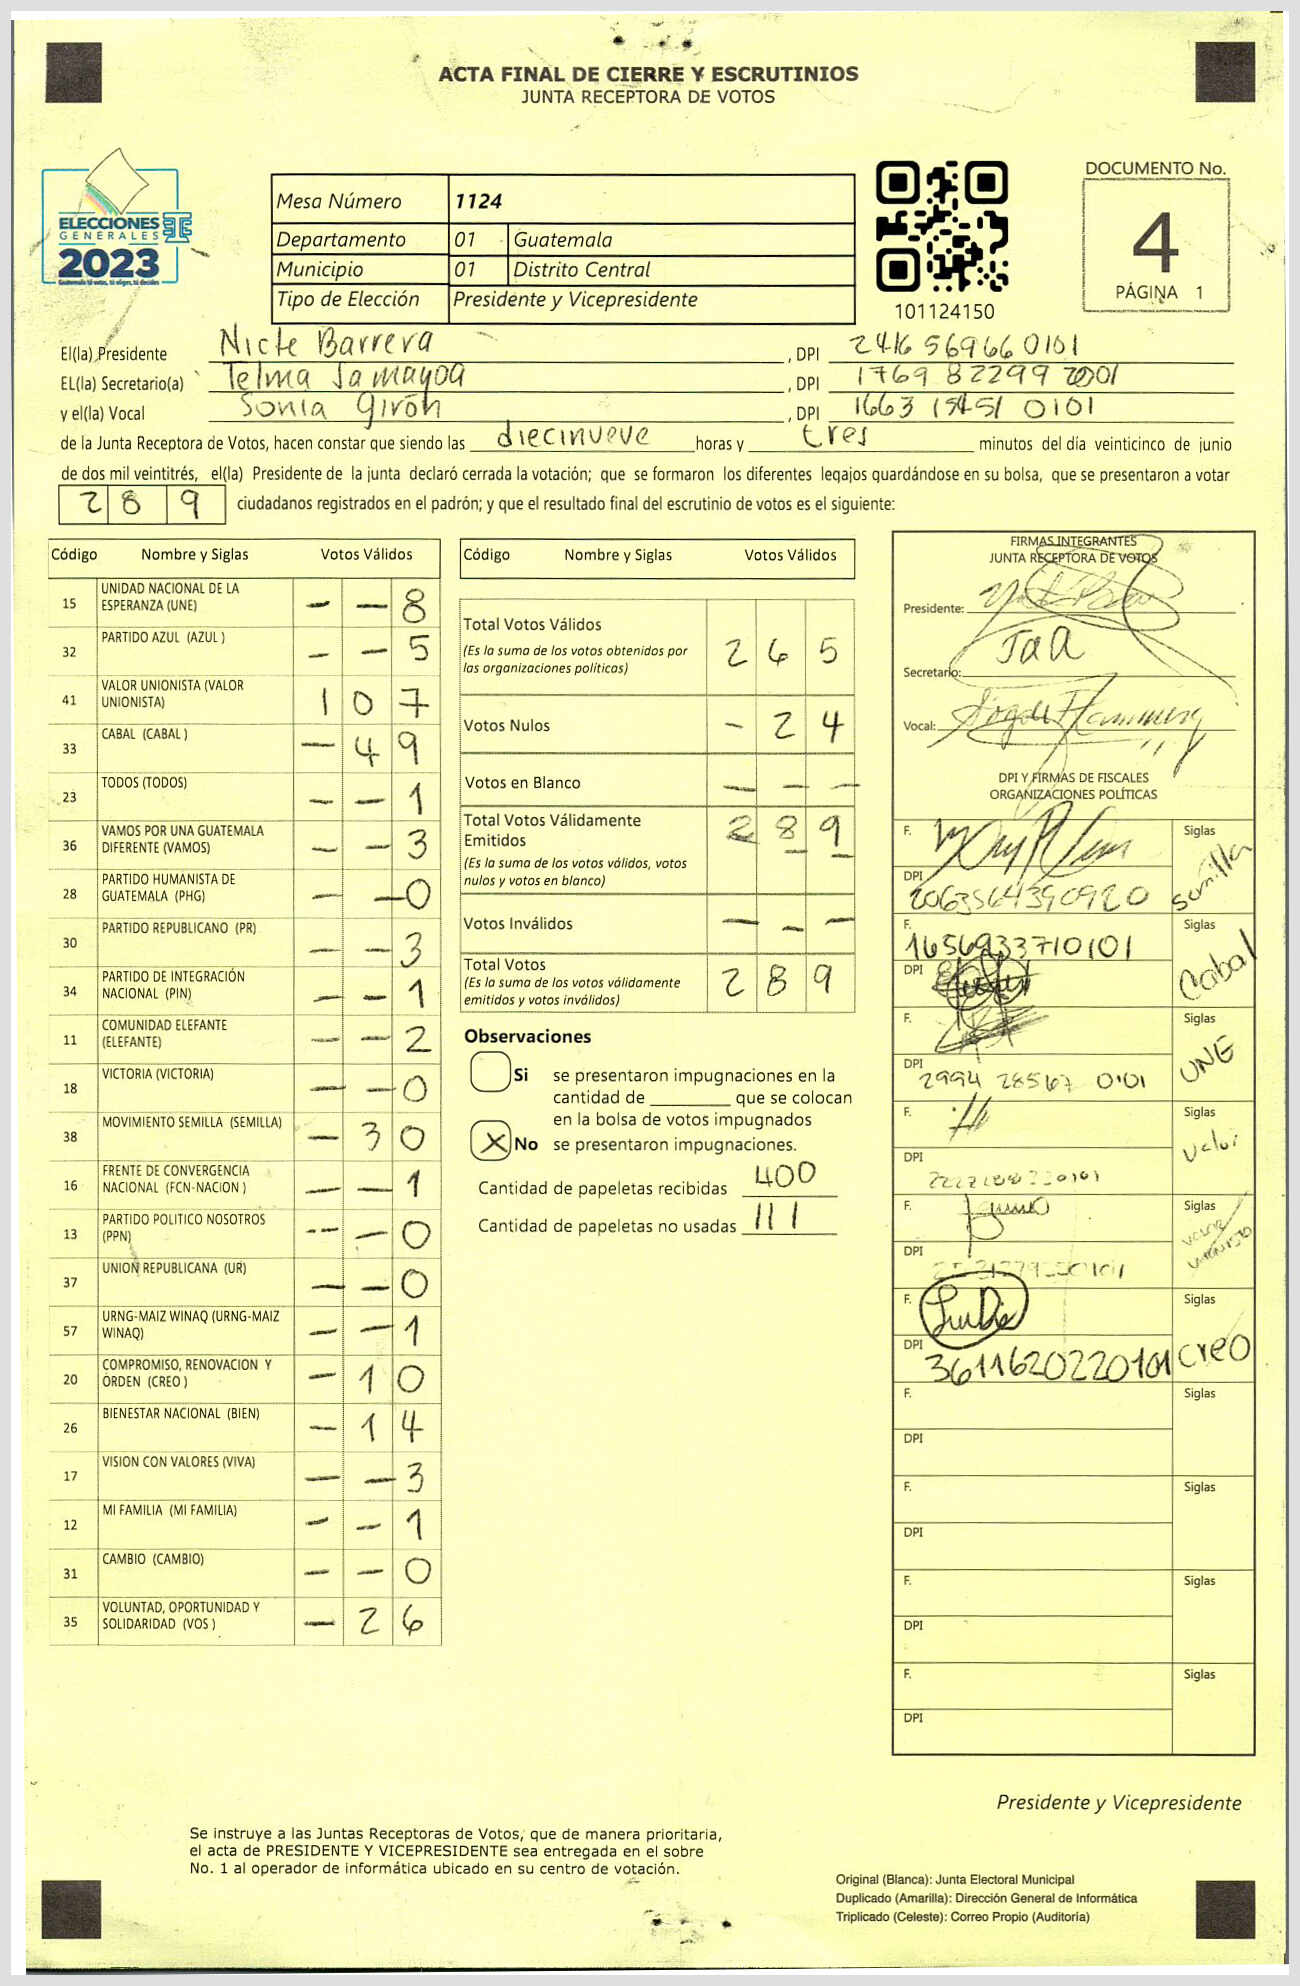 ACTA FINAL DE CIERRE Y ESCRUTINIOS
JUNTA RECEPTORA DE VOTOS
ELECCIONES
GENERALES
2023
Guatemala tú votas, tú eliges, tú decides
Mesa Número 1124
Departamento 01 Guatemala
Municipio 01 Distrito Central
Tipo de Elección Presidente y Vicepresidente
101124150
DOCUMENTO No.
4
PÁGINA 1
El(la) Presidente Nicte Barrera , DPI 2416 56966 0101
EL(la) Secretario(a) Telma Samayoa , DPI 1769 82299
y el(la) Vocal Sonia Girón , DPI 1663 15451 0101
de la Junta Receptora de Votos, hacen constar que siendo las diecinueve horas y tres minutos del día veinticinco de junio
de dos mil veintitrés, el(la) Presidente de la junta declaró cerrada la votación; que se formaron los diferentes legajos guardándose en su bolsa, que se presentaron a votar
2 8 9 ciudadanos registrados en el padrón; y que el resultado final del escrutinio de votos es el siguiente:
Código Nombre y Siglas Votos Válidos
15 UNIDAD NACIONAL DE LA ESPERANZA (UNE) – – 8
32 PARTIDO AZUL (AZUL ) – – 5
41 VALOR UNIONISTA (VALOR UNIONISTA) 1 0 7
33 CABAL (CABAL ) – 4 9
23 TODOS (TODOS) – – 1
36 VAMOS POR UNA GUATEMALA DIFERENTE (VAMOS) – – 3
28 PARTIDO HUMANISTA DE GUATEMALA (PHG) – – 0
30 PARTIDO REPUBLICANO (PR) – – 3
34 PARTIDO DE INTEGRACIÓN NACIONAL (PIN) – – 1
11 COMUNIDAD ELEFANTE (ELEFANTE) – – 2
18 VICTORIA (VICTORIA) – – 0
38 MOVIMIENTO SEMILLA (SEMILLA) – 3 0
16 FRENTE DE CONVERGENCIA NACIONAL (FCN-NACION ) – – 1
13 PARTIDO POLITICO NOSOTROS (PPN) – – 0
37 UNION REPUBLICANA (UR) – – 0
57 URNG-MAIZ WINAQ (URNG-MAIZ WINAQ) – – 1
20 COMPROMISO, RENOVACION Y ORDEN (CREO ) – 1 0
26 BIENESTAR NACIONAL (BIEN) – 1 4
17 VISION CON VALORES (VIVA) – – 3
12 MI FAMILIA (MI FAMILIA) – – 1
31 CAMBIO (CAMBIO) – – 0
35 VOLUNTAD, OPORTUNIDAD Y SOLIDARIDAD (VOS ) – 2 6
Código Nombre y Siglas Votos Válidos
Total Votos Válidos 2 6 5
(Es la suma de los votos obtenidos por
las organizaciones políticas)
Votos Nulos – 2 4
Votos en Blanco – – –
Total Votos Válidamente
Emitidos 2 8 9
(Es la suma de los votos válidos, votos
nulos y votos en blanco)
Votos Inválidos – – –
Total Votos 2 8 9
(Es la suma de los votos válidamente
emitidos y votos inválidos)
Observaciones
Si se presentaron impugnaciones en la
cantidad de ________ que se colocan
en la bolsa de votos impugnados
X No se presentaron impugnaciones.
Cantidad de papeletas recibidas 400
Cantidad de papeletas no usadas 111
FIRMAS INTEGRANTES
JUNTA RECEPTORA DE VOTOS
Presidente:
Secretario:
Vocal:
DPI Y FIRMAS DE FISCALES
ORGANIZACIONES POLÍTICAS
F. Siglas Semilla
DPI 2063564390920
F. 1656933710101 Siglas Cabal
DPI
F. Siglas UNE
DPI 2994 28567 0101
F. Siglas Valor
DPI
F. Siglas Valor Unionista
DPI
F. Siglas Creo
DPI 3611620220101
F. Siglas
DPI
F. Siglas
DPI
F. Siglas
DPI
F. Siglas
DPI
Presidente y Vicepresidente
Se instruye a las Juntas Receptoras de Votos, que de manera prioritaria,
el acta de PRESIDENTE Y VICEPRESIDENTE sea entregada en el sobre
No. 1 al operador de informática ubicado en su centro de votación.
Original (Blanca): Junta Electoral Municipal
Duplicado (Amarilla): Dirección General de Informática
Triplicado (Celeste): Correo Propio (Auditoría)